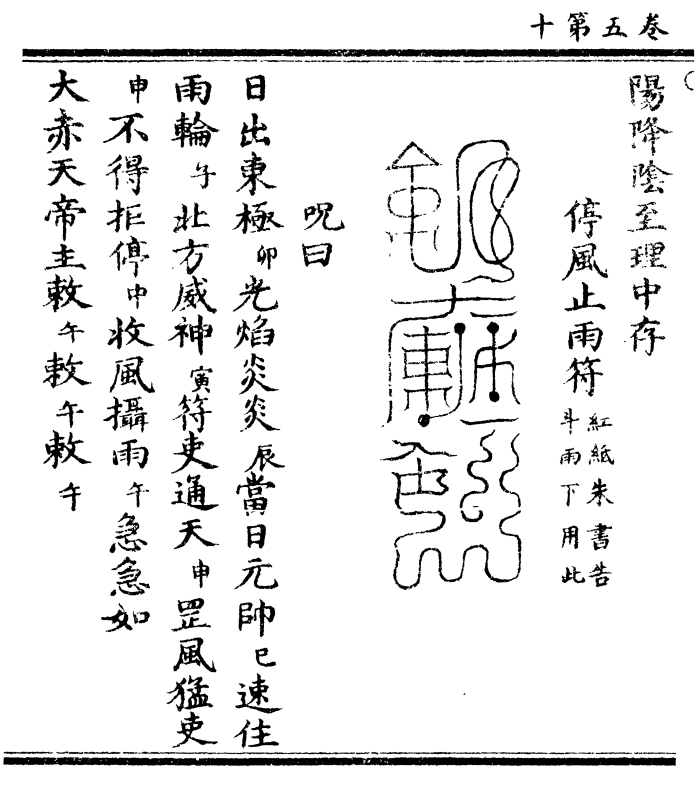 卷五第十
陽降陰至理中存
停風止雨符
紅紙朱書告
斗雨下用此
呪曰
日出東極卯光焰炎炎辰當日元帥巳速住
雨輪午北方威神寅符吏通天申罡風猛吏
申不得拒停中收風攝雨午急急如
大赤天帝主敕午敕午敕午